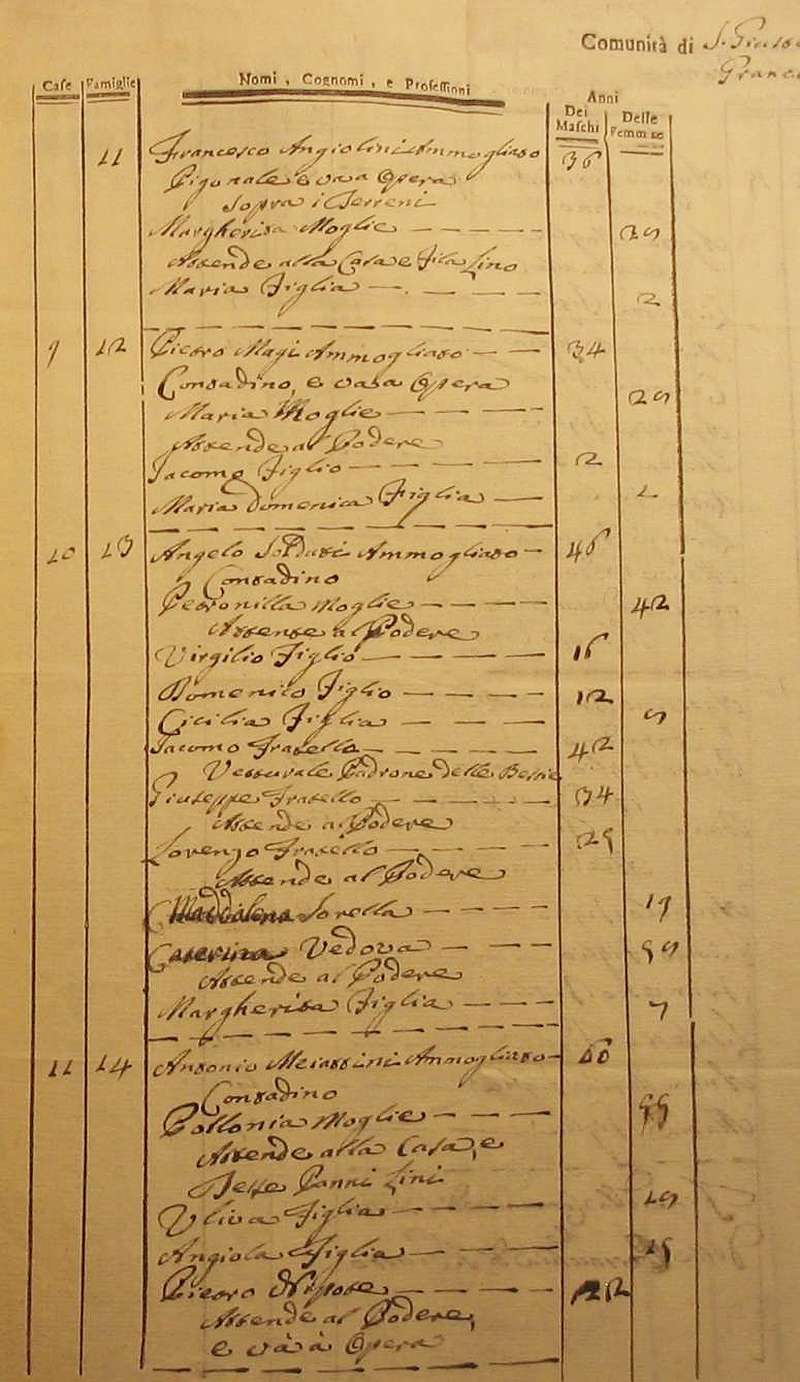 Comunità di S.
Case Famiglie Nomi, Cognomi, e Professioni Anni
Dei Maschi Delle Femmine
11 Francesco Angiolini Ammogliato 36
Pigionale e va a Opera
Sopra i Terreni
Margherita Moglie 29
Attende alla Casa e Fila Lino
Maria Figlia 2
9 12 Pietro Magi Ammogliato 34
Contadino, e va a Opera
Maria Moglie 29
Attende al Podere
Jacomo Figlio 2
Maria Domenica Figlia
10 13 Angelo Ammogliato 46
Contadino
Petronilla Moglie 42
Attense al Podere
Virgilio Figlio 16
Domenico Figlio 12
Cicilia Figlia 9
Jacomo Fratello 42
Vetturale Padrone delle Bestie
Giuseppe Fratello 34
Attende al Podere
Lorenzo Fratello 29
Attende al Podere
Maddalena Sorella 19
Caterina Vedova 59
Attende al Podere
Margherita Figlia 7
11 14 Antonio Ammogliato 60
Contadino
Pollonia Moglie 55
Attende alla Casa, e
Tesse Panni Lini
Uliva Figlia 19
Angiola Figlia 15
Pietro Nipote 12
Attende al Podere,
e và à Opera